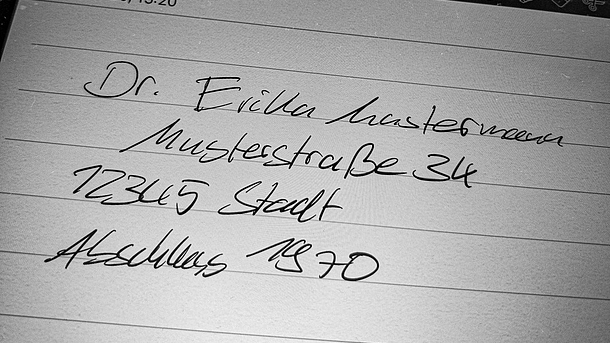 13:20
Dr. Erika Mustermann
Musterstraße 34
12345 Stadt
Abschluss 1970